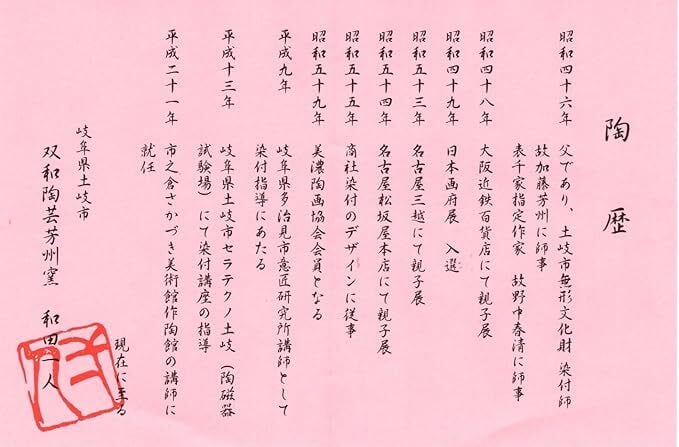 陶歴
昭和四十六年　父であり、土岐市無形文化財 染付師
故加藤芳州に師事
表千家指定作家　故野中春清に師事
昭和四十八年　大阪近鉄百貨店にて親子展
昭和四十九年　日本画府展　入選
昭和五十三年　名古屋三越にて親子展
昭和五十四年　名古屋松坂屋本店にて親子展
昭和五十五年　商社染付のデザインに従事
昭和五十九年　美濃陶画協会会員となる
平成九年　岐阜県多治見市意匠研究所講師として
染付指導にあたる
平成十三年　岐阜県土岐市セラテクノ土岐（陶磁器
試験場）にて染付講座の指導
平成二十一年　市之倉さかづき美術館作陶館の講師に
就任
現在に至る
岐阜県土岐市
双和陶芸芳州窯　和田一人